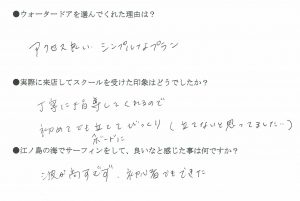 ●ウォータードアを選んでくれた理由は？
アクセス良い シンプルなプラン
●実際に来店してスクールを受けた印象はどうでしたか？
丁寧に指導してくれるので
初めてでも立ててびっくり（立てないと思ってました…）
ボードに
●江ノ島の海でサーフィンをして、良いなと感じた事は何ですか？
波が高すぎず、初心者でもできた